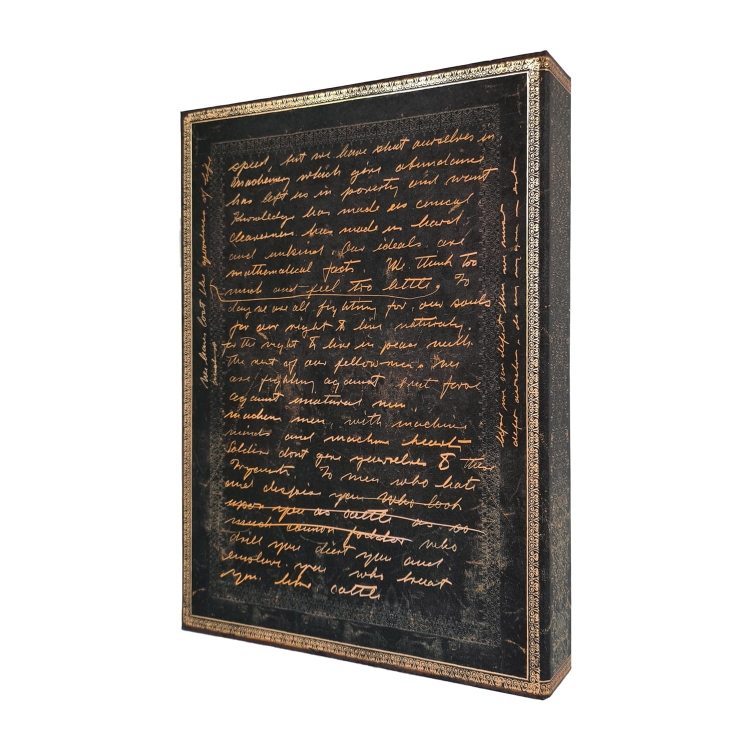 speed but we have shut ourselves in.
machinery which gives abundance
has left us in poverty and want
Knowledge has made us cynical
cleverness has made us hard
and unkind. Our ideals are
mathematical facts. We think too
much and feel too little. To
day we are all fighting for our souls
for our right to live naturaly.
for the right to live in peace with
the rest of our fellow men. We
are fighting against brut force
against unatural men.
machine men, with machine
minds and machine hearts
Soldiers dont give yourselves to these
To men who hate
and despise you who look
upon you as cattle as so
much cannon fodder who
drill you diert you and
you who treat
you like cattle
We have lost the of life